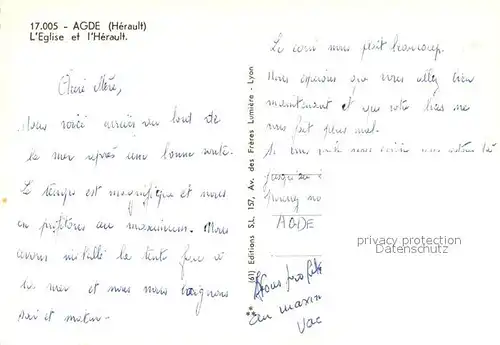 17.005 - AGDE (Hérault)
L'Eglise et l'Hérault.
Chère Mère,
Nous voici arrivés au bord de
la mer après une bonne route.
Le temps est magnifique et nous
en profitons au maximum. Nous
avons installé la tente face à
la mer et nous nous baignons
soir et matin.
(61) Editions S.L. 157, Av. des Frères Lumière - Lyon
Le coin nous plaît beaucoup.
Nous espérons que vous allez bien
maintenant et que votre bras ne
vous fait plus mal.
Si vous voulez nous écrire nous
jusqu'au
AGDE
privacy protection
Datenschutz
Nous profit
au maxim
vac